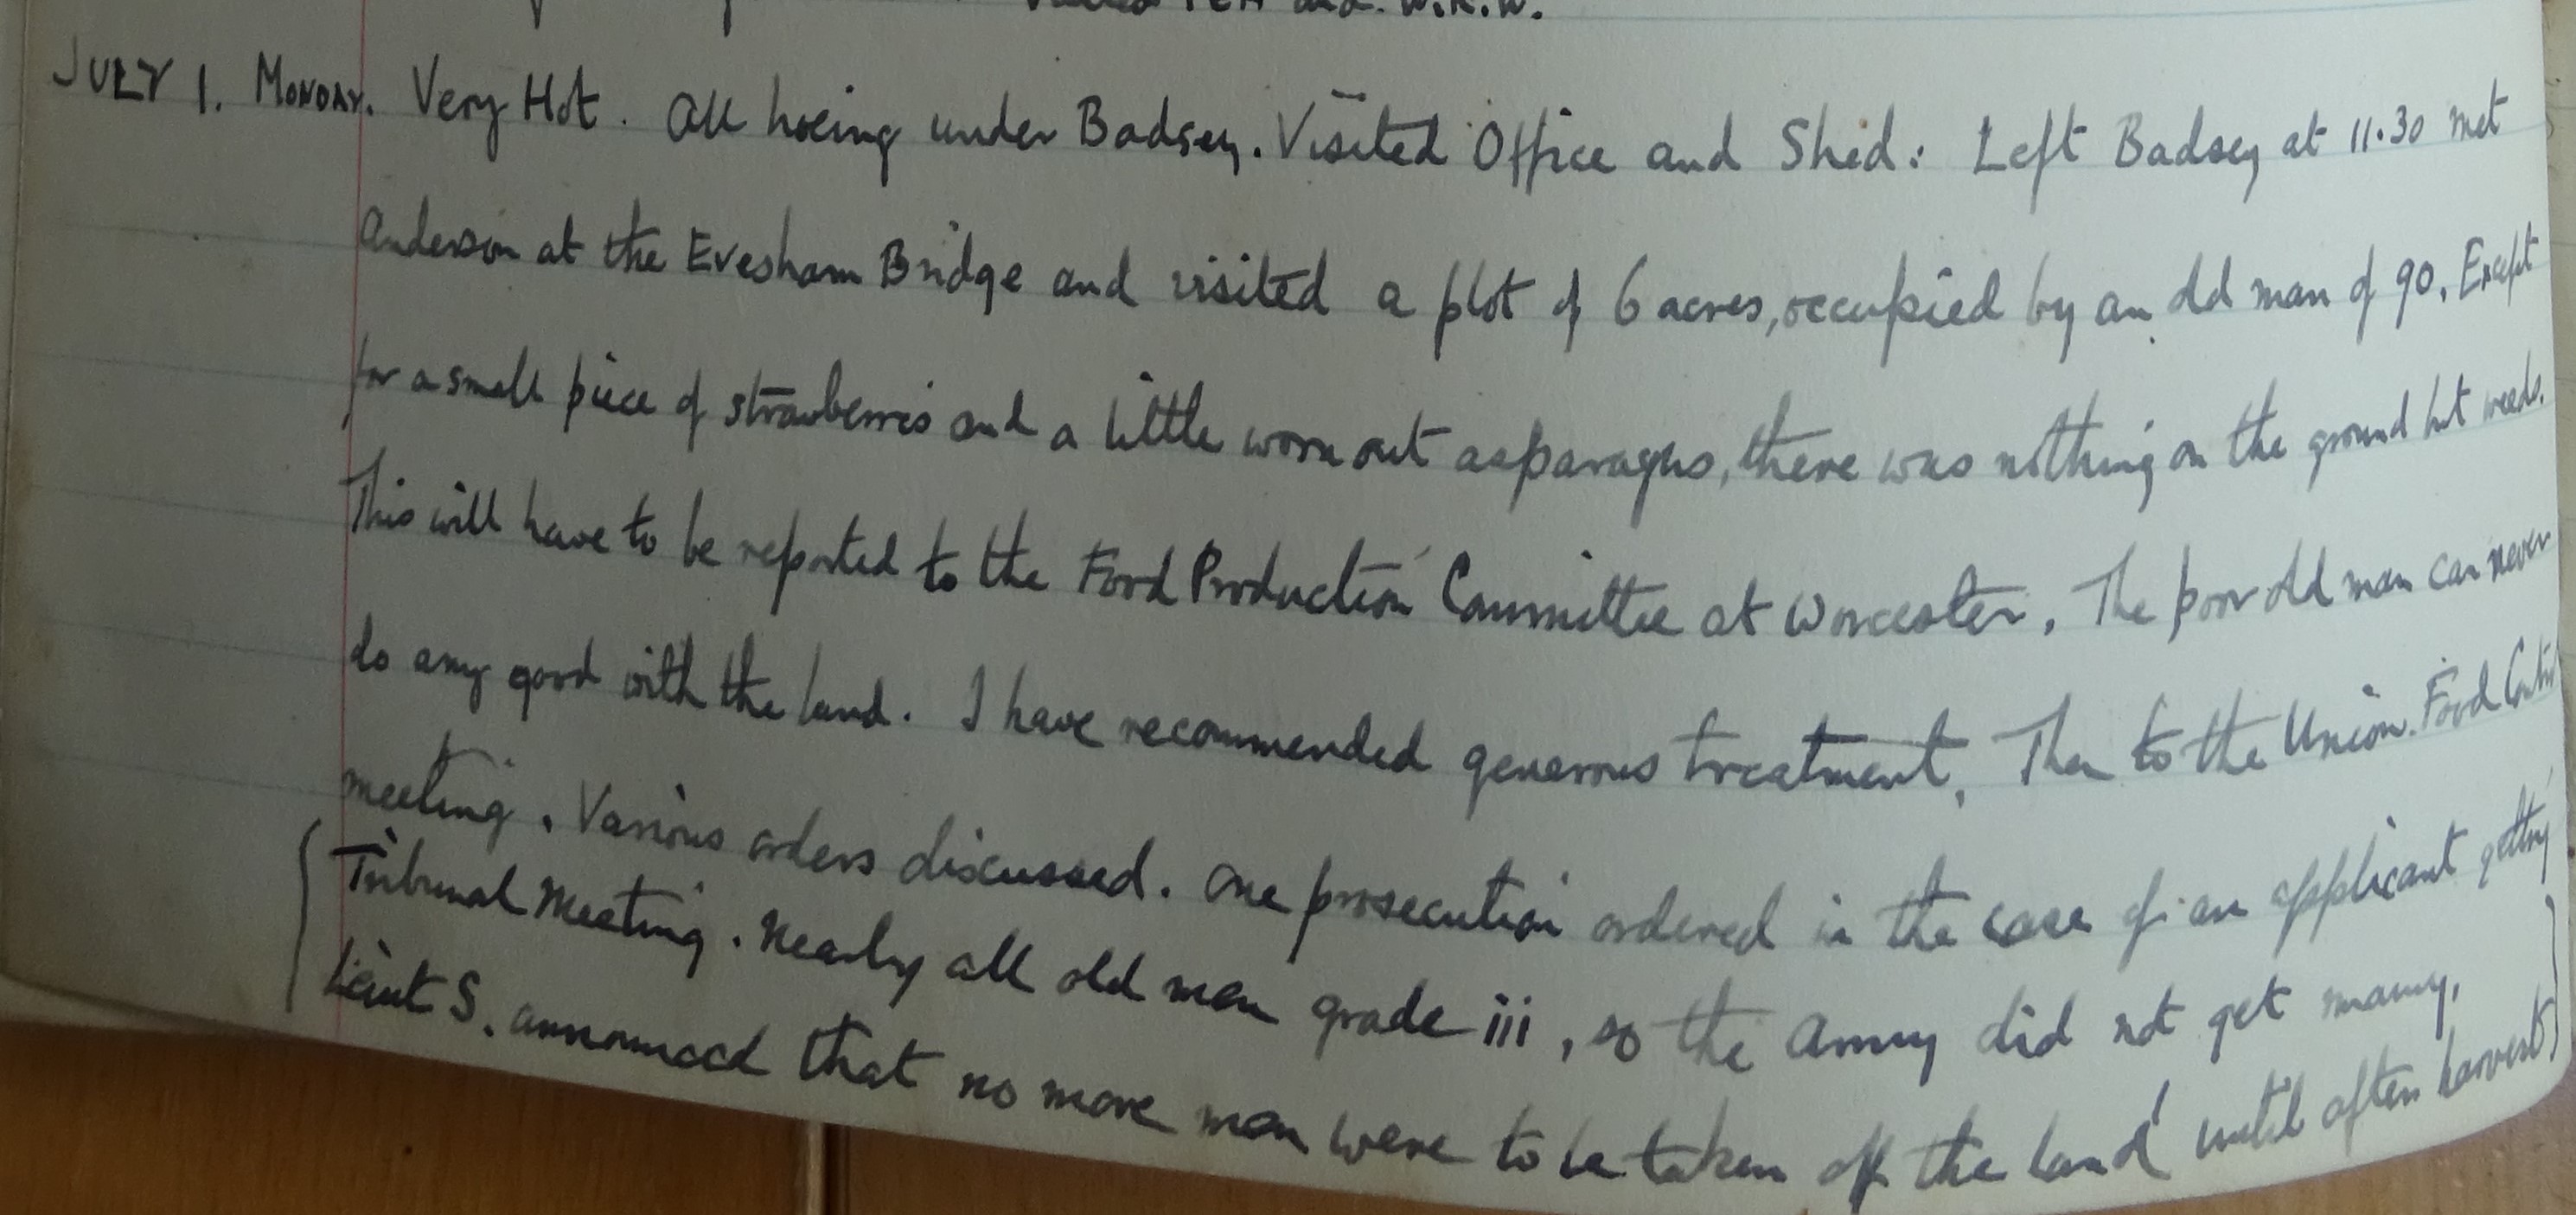 and W.R.W.
JULY 1. MONDAY. Very Hot. All hoeing under Badsey. Visited Office and Shed: Left Badsey at 11.30 met
Anderson at the Evesham Bridge and visited a plot of 6 acres, occupied by an old man of 90. Except
for a small piece of strawberries and a little worn out asparagus, there was nothing on the ground but weeds.
This will have to be reported to the Food Production Committee at Worcester. The poor old man can never
do any good with the land. I have recommended generous treatment. Then to the Union. Food
meeting. Various orders discussed. One prosecution ordered in the case of an applicant getting
(Tribunal Meeting. Nearly all old men grade iii, so the Army did not get many.
Lieut S. announced that no more men were to be taken off the land until after harvest)